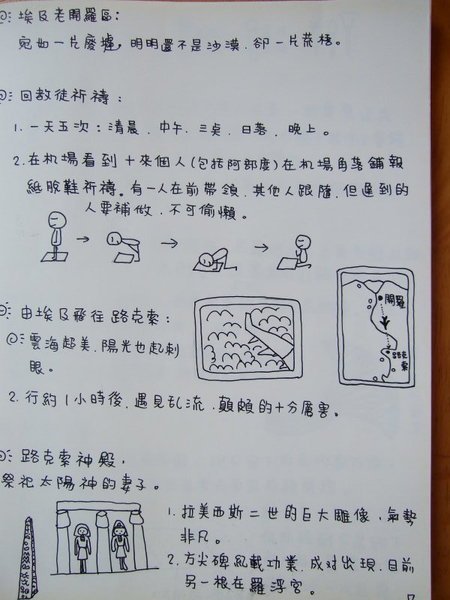 埃及老開羅區：
宛如一片廢墟，明明還不是沙漠，卻一片荒梧。
回教徒祈禱：
1. 一天五次：清晨、中午、三點、日落、晚上。
2. 在机場看到十來個人(包括阿部度)在机場角落鋪報
紙脫鞋祈禱。有一人在前帶領，其他人跟隨，但遲到的
人要補做，不可偷懶。
由埃及飛往路克索：
雲海超美，陽光也超刺
眼。
開羅
路克索
2. 行約1小時後，遇見乱流，顛頗的十分厲害。
路克索神殿，
祭祀太陽神的妻子。
1. 拉美西斯二世的巨大雕像，氣勢
非凡。
2. 方尖碑紀載功業，成对出現，目前
另一根在羅浮宮。